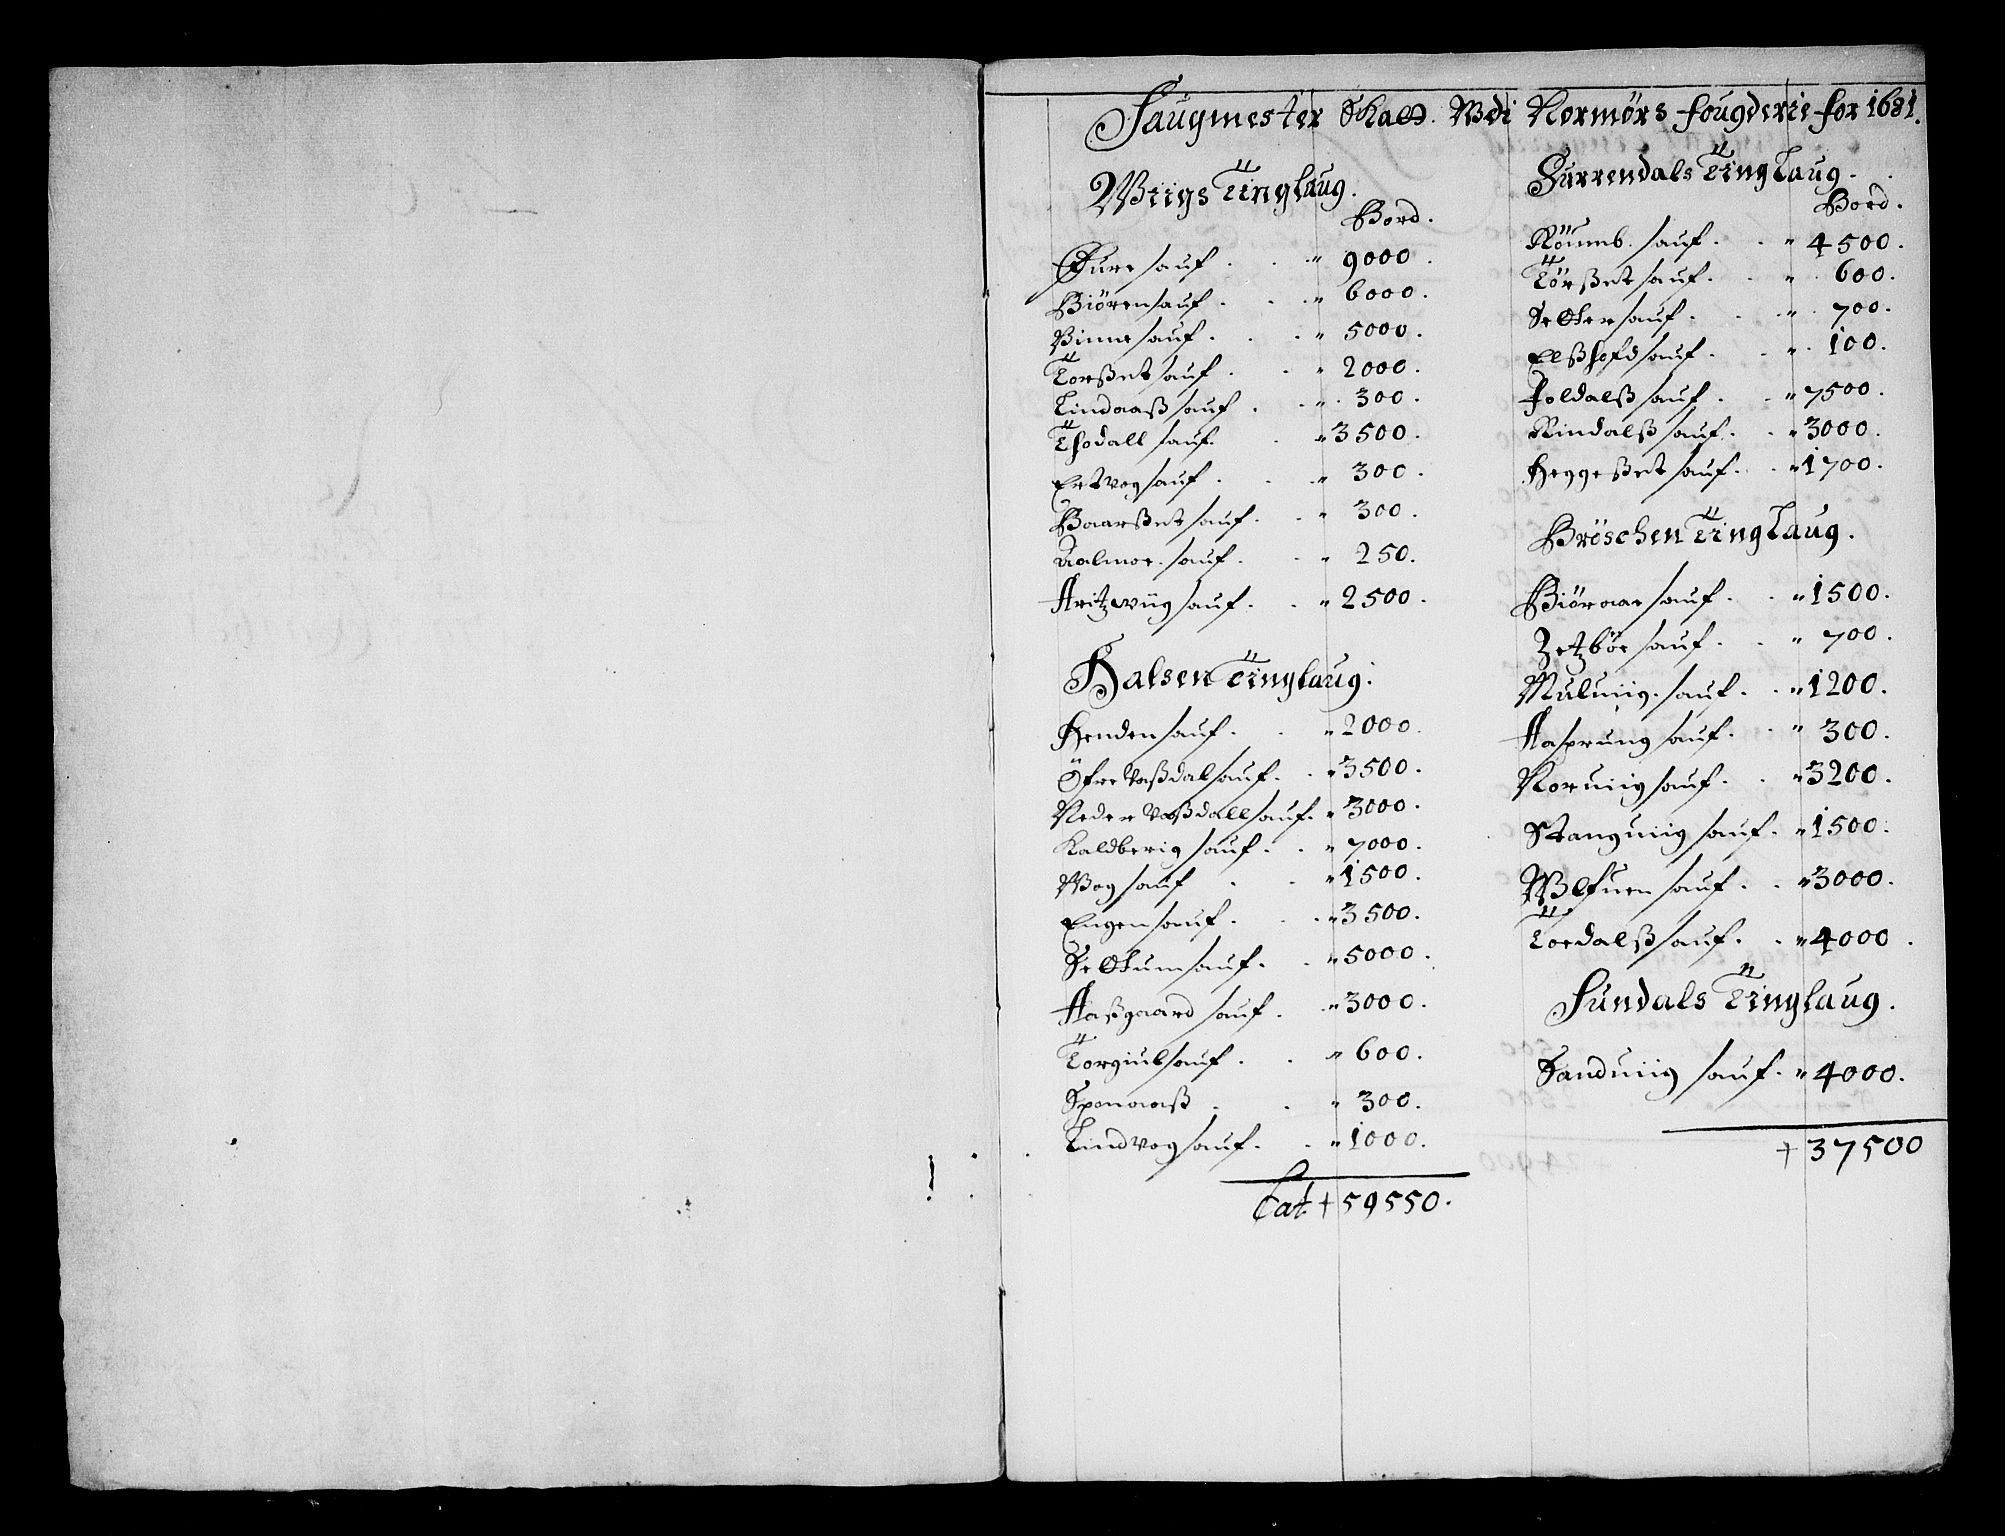 Saugmester Skatt Wdi Normørs fougderie for 1681.
Wiigs Tinglaug.
Bord.
Fure sauf . . " 9000.
Biören sauf . . " 6000.
Vinne sauf . . " 5000.
Torßet sauf . . " 2000.
Lindaaß sauf . . " 300.
Thodall sauf . " 3500.
Ertvog sauf . . " 300.
Baarßet sauf . . " 300.
Aalmoe sauf . . " 250.
Aritzwiig sauf . . " 2500.
Halsen Tinglaug.
Henden sauf . . " 2000.
Öfre Vaßdal sauf . . " 3500.
Neder Vaßdall sauf . " 3000.
Kaldberig sauf . . " 7000.
Wog sauf . . " 1500.
Engen sauf . . " 3500.
sauf . . " 5000.
Aaßgaard sauf . . " 3000.
Torgiul sauf . . " 600.
Sponaaß . . " 300.
Lindvog sauf . . " 1000.
Lat + 59550.
Surrendals Ting Laug.
Bord.
sauf . . " 4500.
Törßet sauf . . " 600.
sauf . . " 700.
Elßhofd sauf . . " 100.
Foldalß sauf . . " 7500.
Rindalß sauf . . " 3000.
Heggeßet sauf . . " 1700.
Bröschen Ting Laug.
Biöraae sauf . . " 1500.
Zetzböe sauf . . " 700.
Muluiig sauf . . " 1200.
Aasprung sauf . . " 300.
Noruiig sauf . . " 3200.
Stanguiig sauf . " 1500.
Wlfuen sauf . . " 3000.
Toedalß sauf . . " 4000.
Sundals Tinglaug.
Sanduiig sauf . " 4000.
+ 37500